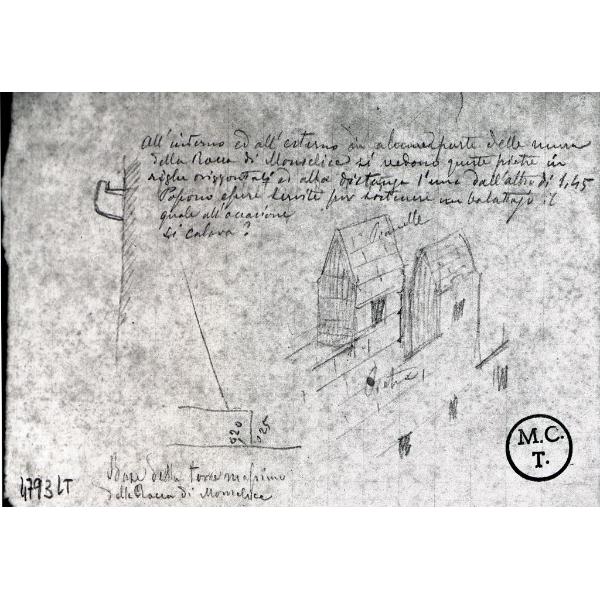 All'interno ed all'esterno in alcune parte delle mura
della Rocca di Monselice si vedono queste pietre in
righe orizzontali ed alla distanza l'una dall'altra di 1,45
Possono essere servite per sostenere un ballatojo il
quale all'occasione
si calava?
Pianelle
Pietra
0,20
0,25
Base della torre massima
della Rocca di Monselice
4793 LT
M.C.
T.